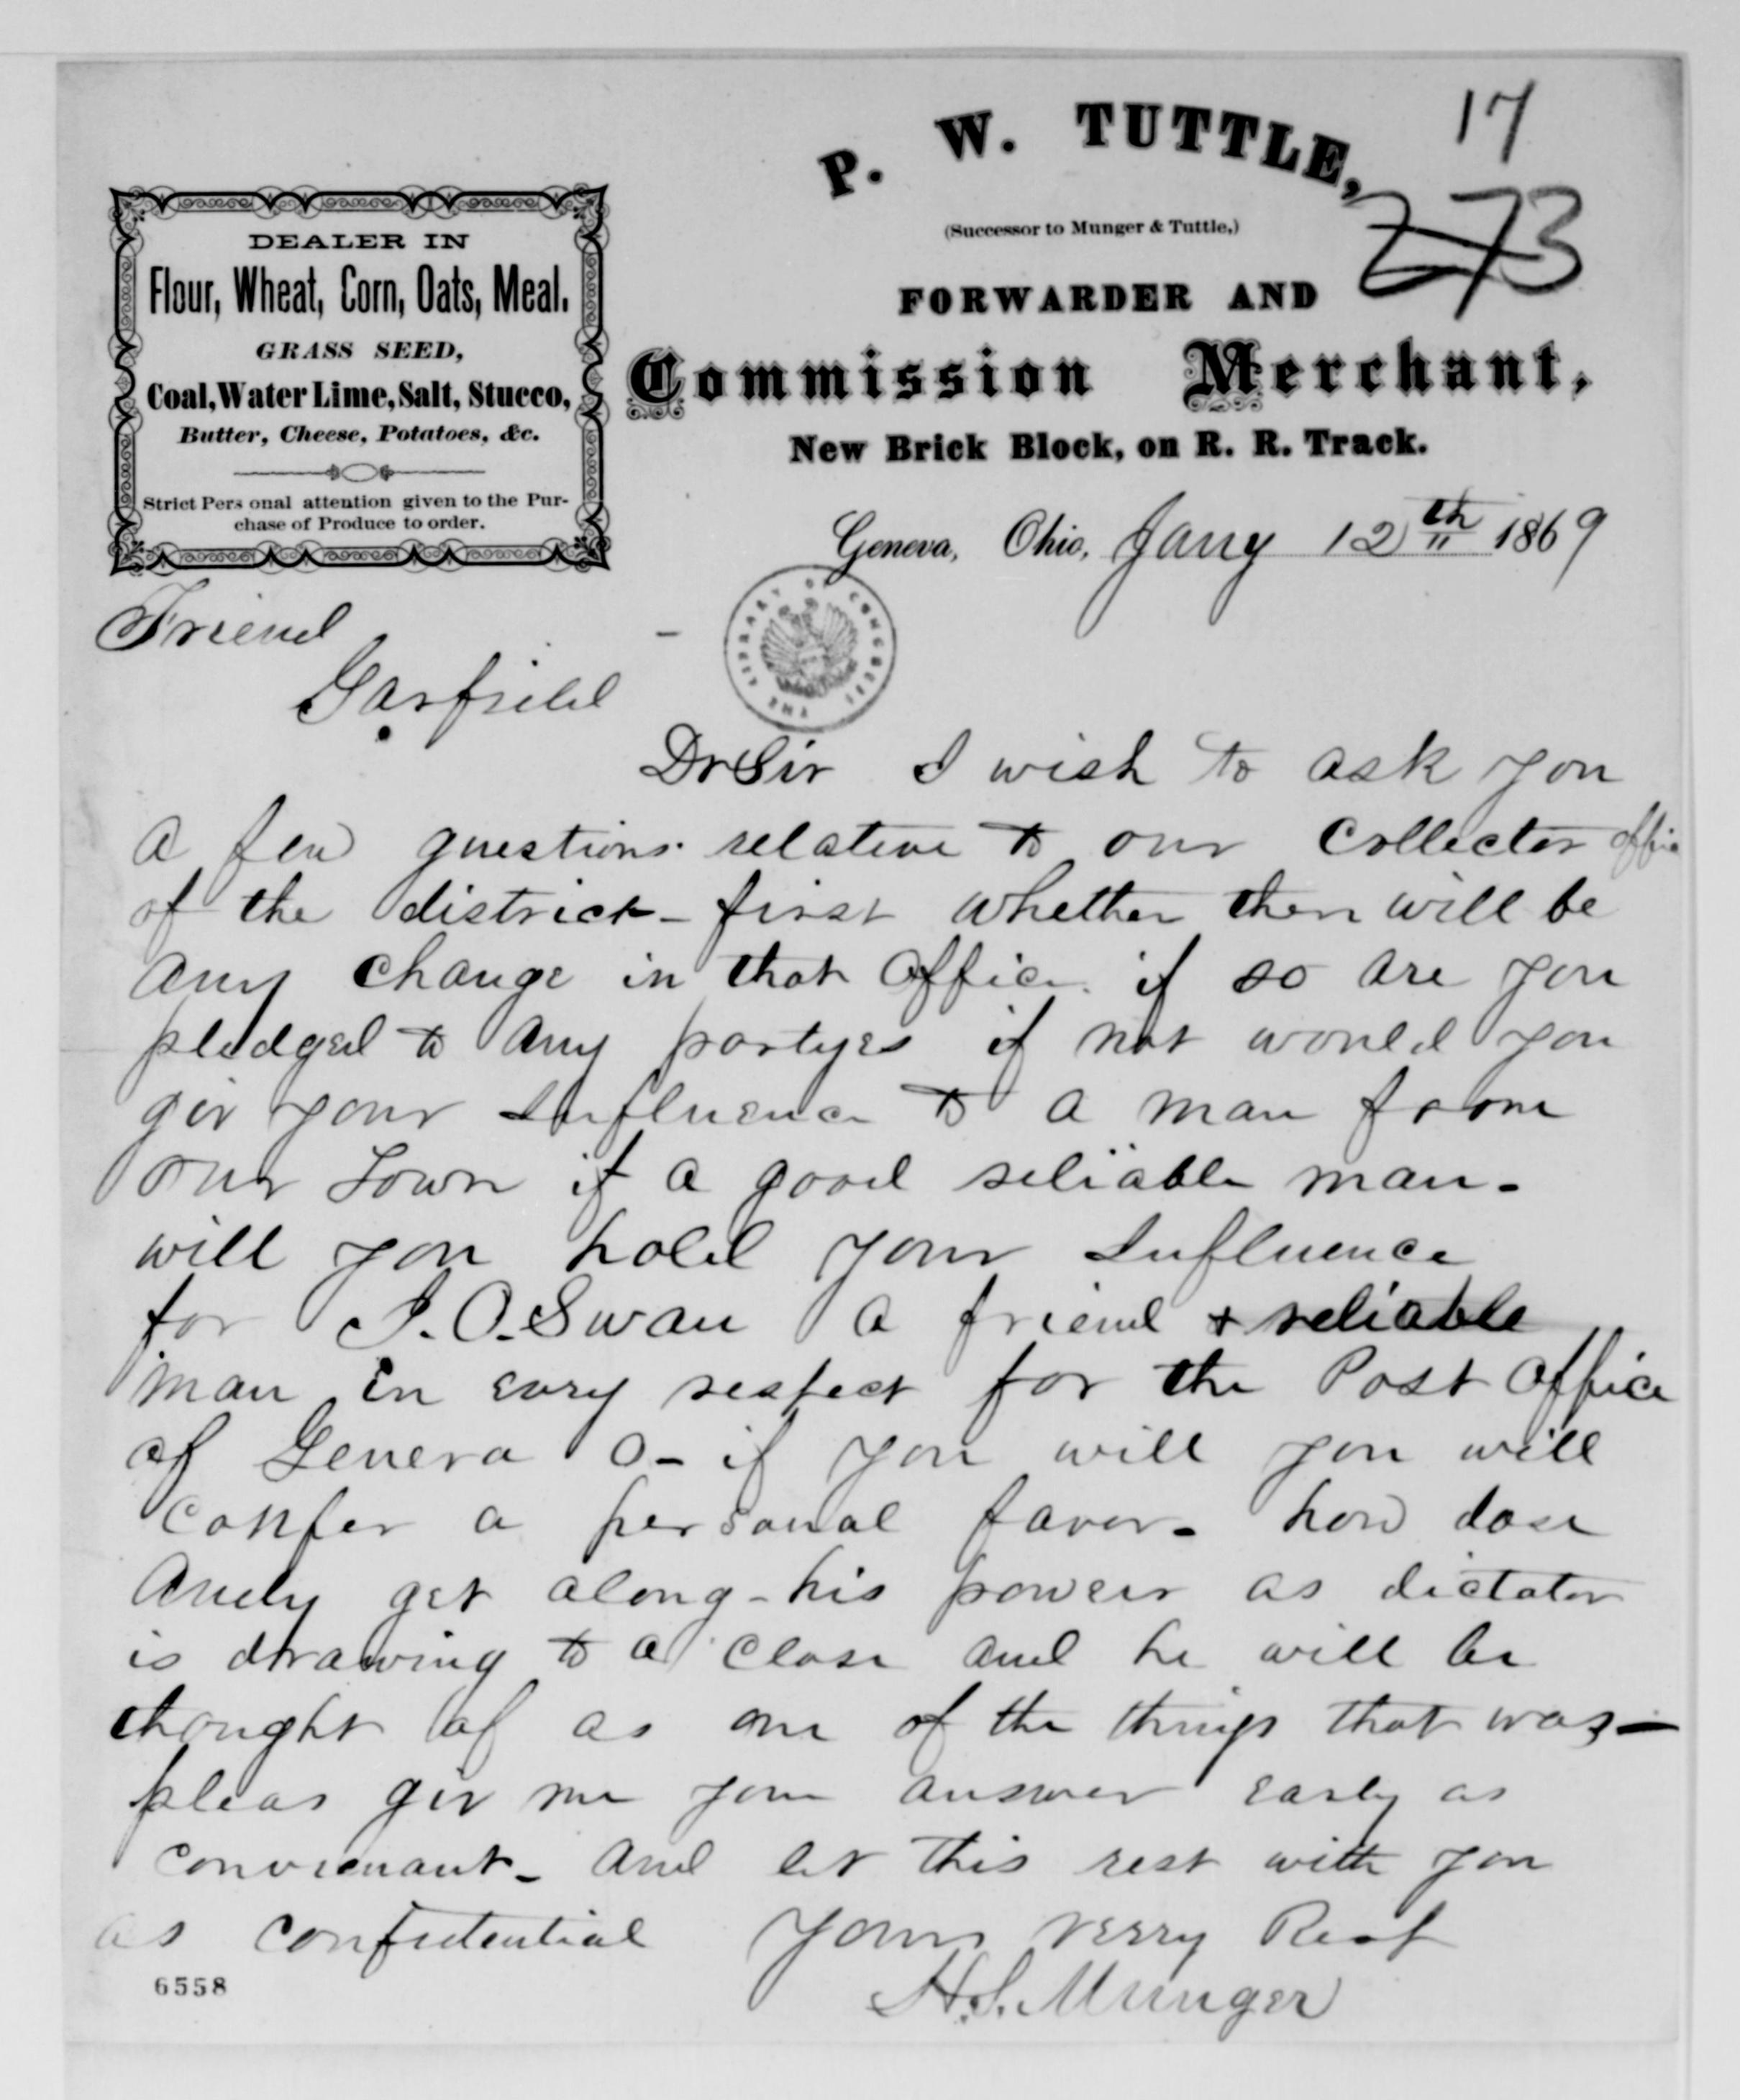 17
P. W. TUTTLE,
273
(Successor to Munger & Tuttle,)
FORWARDER AND
Commission Merchant,
New Brick Block, on R. R. Track.
DEALER IN
Flour, Wheat, Corn, Oats, Meal.
GRASS SEED,
Coal, Water Lime, Salt, Stucco,
Butter, Cheese, Potatoes, &c.
Strict Pers onal attention given to the Pur-
chase of Produce to order.
Geneva, Ohio, Jany 12th 1869
THE LIBRARY OF CONGRESS
Friend
Garfield
Dr Sir I wish to ask you
a few questions relative to our Collector offic
of the district - first whether ther will be
any change in that office if so are you
pledged to any partyes if not would you
giv your Influence to a man from
our Town if a good reliable man -
will you hold your Influence
for J. O. Swan a friend & reliable
man in evry respect for the Post Office
of Geneva O - if you will you will
confer a personal favor - how dose
Andy get along - his powers as dictator
is drawing to a close and he will be
thought of as one of the things that was -
pleas giv me your answer early as
convienant - and let this rest with you
as confidential Yours verry Resf
H. S. Munger
6558